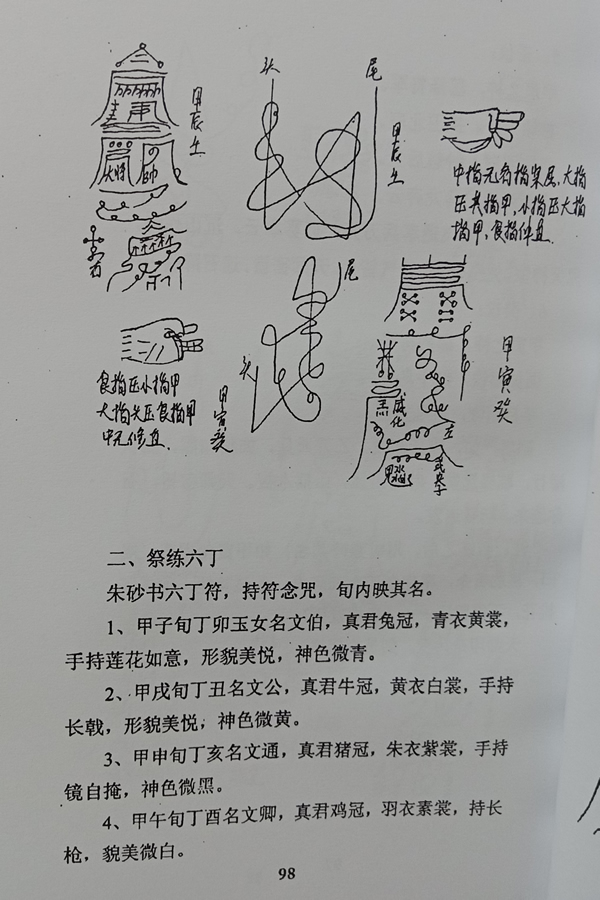 头
尾
甲辰
甲辰
大将
帅
中指无名指架尾,大指
压共指甲,小指压大指
指甲,食指伸直.
尾
头
食指压小指甲
大指尖压食指甲
甲寅癸
甲寅癸
二、祭练六丁
朱砂书六丁符,持符念咒,旬内映其名。
1、甲子旬丁卯玉女名文伯,真君兔冠,青衣黄裳,
手持莲花如意,形貌美悦,神色微青。
2、甲戌旬丁丑名文公,真君牛冠,黄衣白裳,手持
长戟,形貌美悦,神色微黄。
3、甲申旬丁亥名文通,真君猪冠,朱衣紫裳,手持
镜自掩,神色微黑。
4、甲午旬丁酉名文卿,真君鸡冠,羽衣素裳,持长
枪,貌美微白。
98